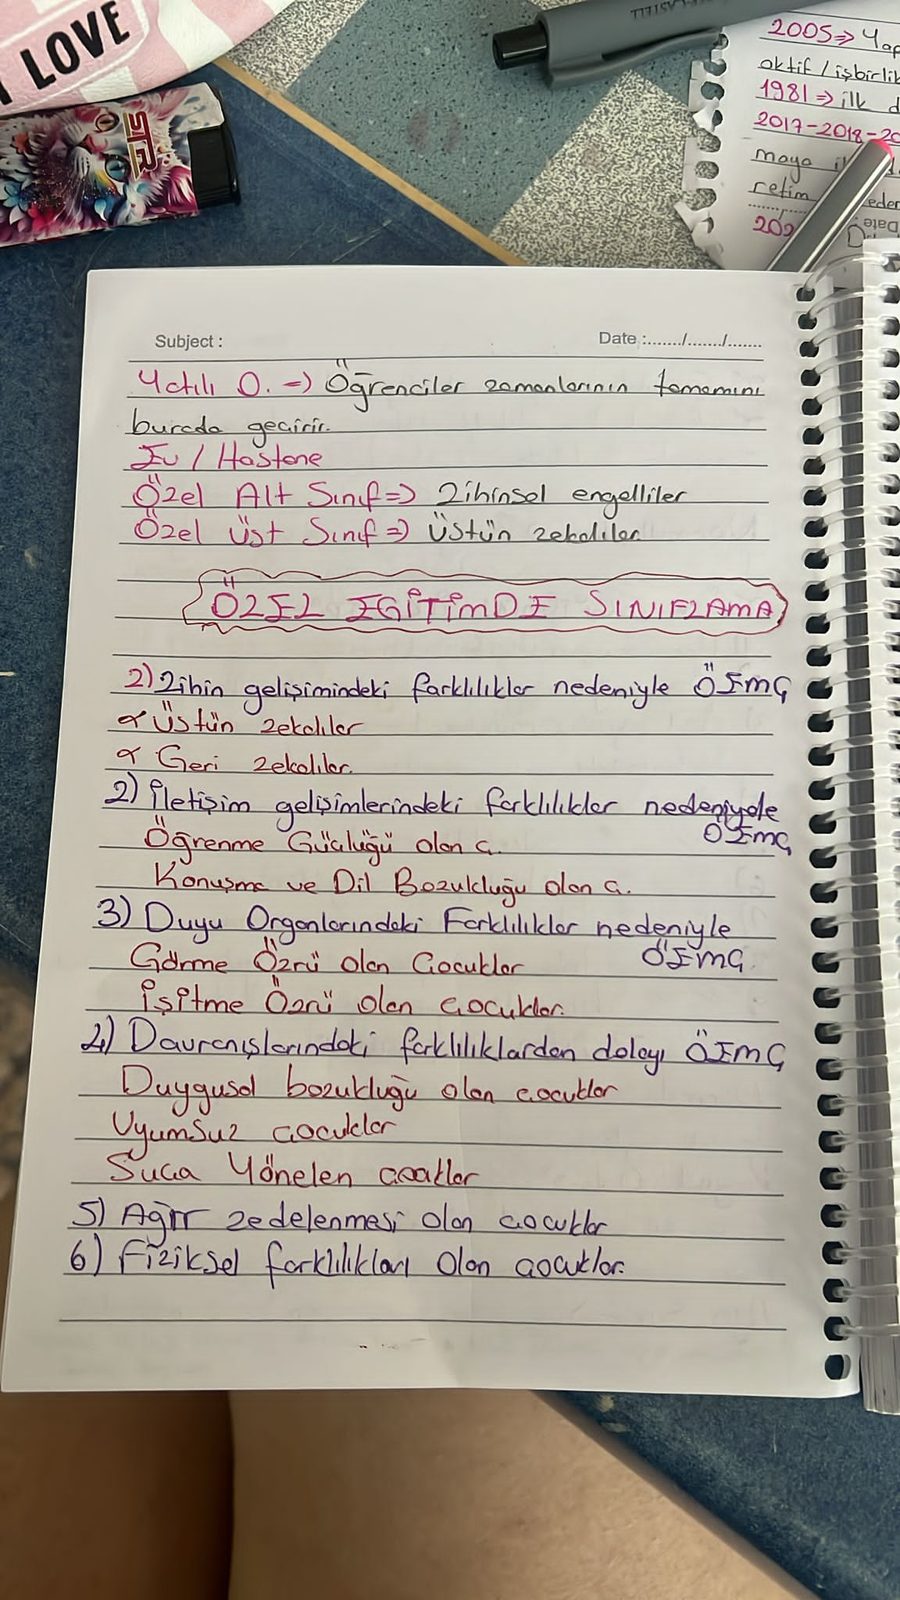 I LOVE
STR
CASTELL
2005=> Yap
aktif / işbirlik
1981 => ilk d
2017-2018-20
maya
retim
eder
202
Date
Subject :
Date :......./......./.......
Yatılı O. => Öğrenciler zamanlarının tamamını
burada geçirir.
Ev / Hastane
Özel Alt Sınıf=> Zihinsel engelliler
Özel Üst Sınıf=> Üstün zekalılar
ÖZEL EĞİTİMDE SINIFLAMA
2) Zihin gelişimindeki farklılıklar nedeniyle ÖEMÇ
α Üstün zekalılar
α Geri zekalılar.
2) İletişim gelişimlerindeki farklılıklar nedeniyole
ÖEMÇ
Öğrenme Güçlüğü olan ç.
Konuşma ve Dil Bozukluğu olan ç.
3) Duyu Organlarındaki Farklılıklar nedeniyle
ÖEMÇ.
Görme Özrü olan Çocuklar
İşitme Özrü olan çocuklar.
4) Davranışlarındaki farklılıklardan dolayı ÖEMÇ
Duygusal bozukluğu olan çocuklar
Uyumsuz çocuklar
Suça Yönelen
5) Ağır zedelenmesi olan çocuklar
6) Fiziksel farklılıkları olan çocuklar.